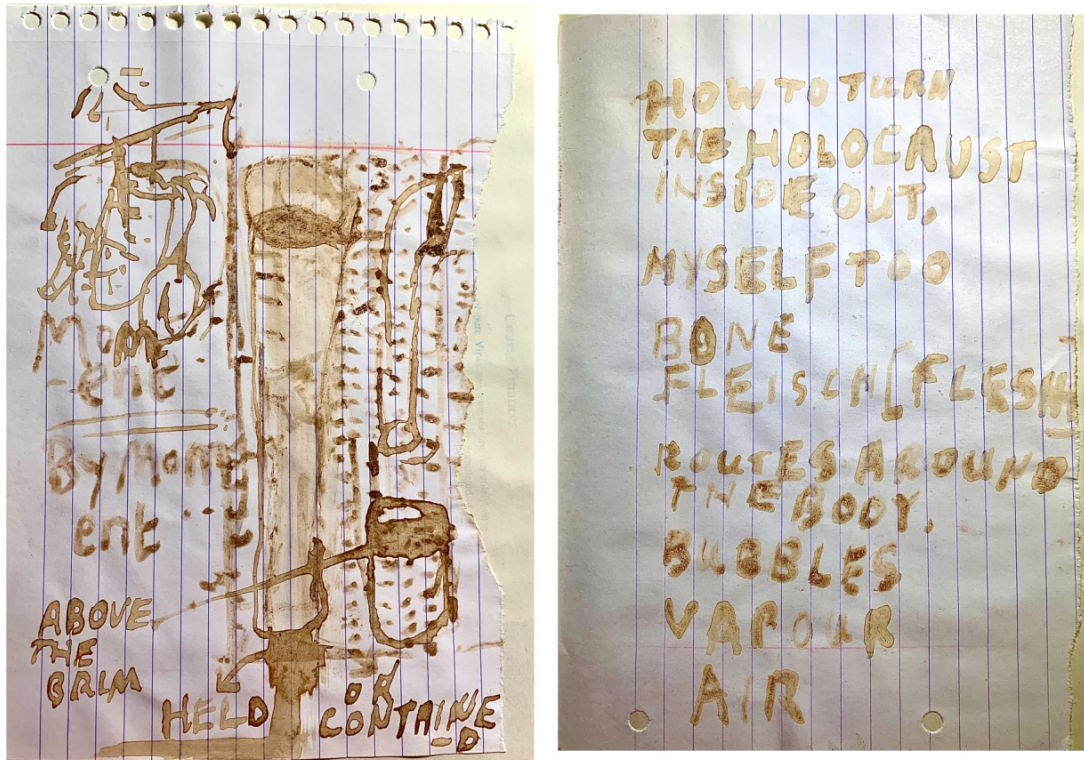 Mom
-ent
By Mom
ent
ABOVE
THE
BRIM
HELD
OR
CONTAINE
-D
HOW TO TURN
THE HOLOCAUST
INSIDE OUT.
MYSELF TOO
BONE
FLEISCH [FLESH
ROUTES AROUND
THE BODY.
BUBBLES
VAPOUR
AIR